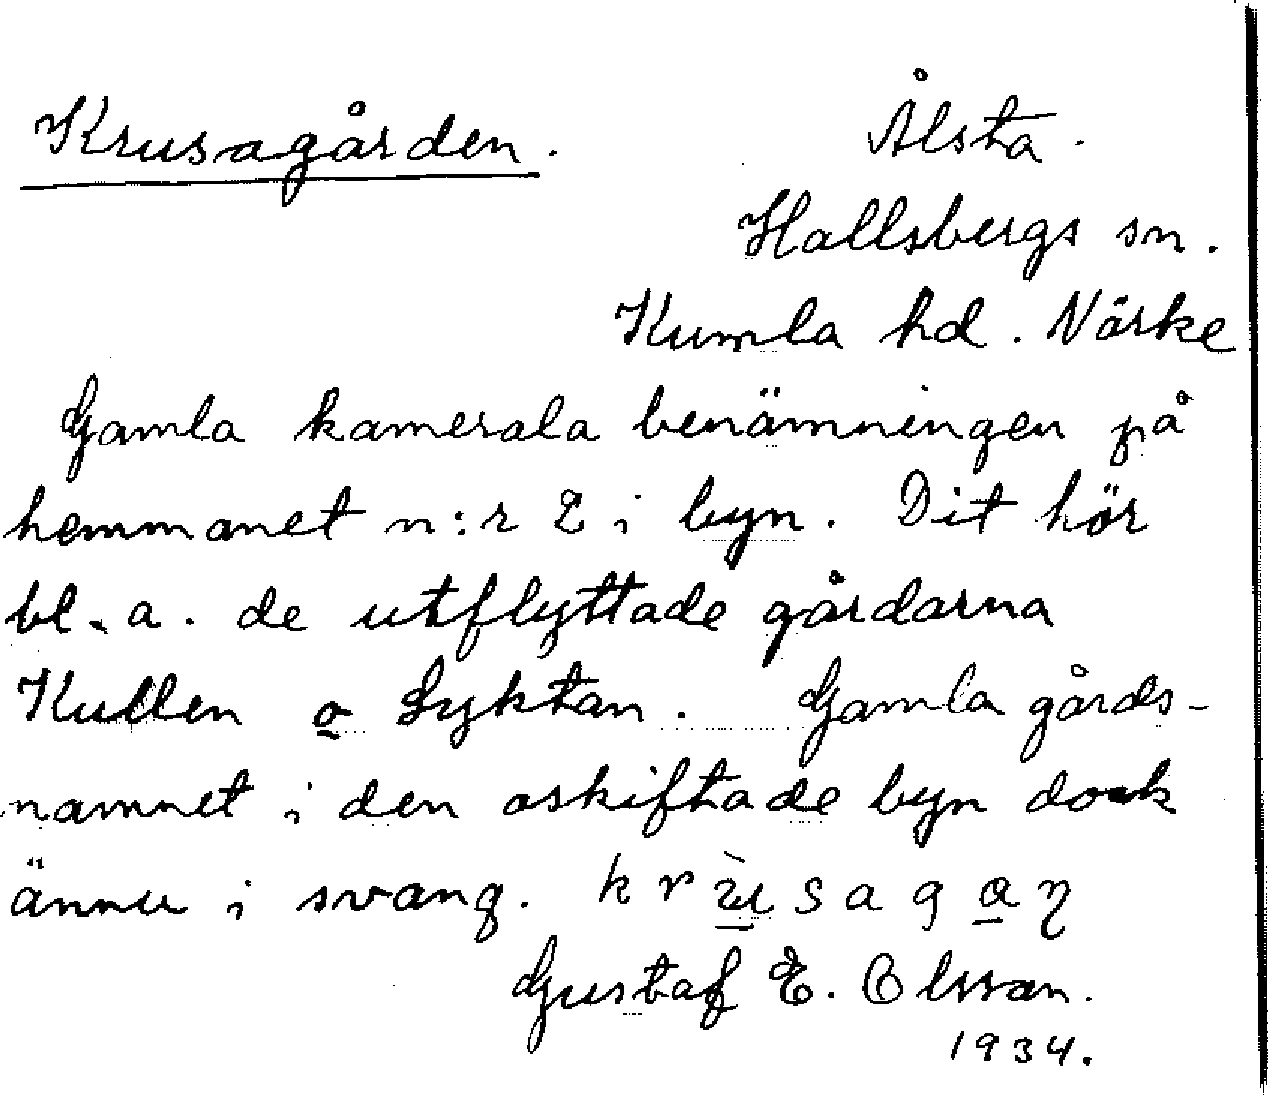 Krusagården. Ålsta.
Hallsbergs sn.
Kumla hd. Närke
Gamla kamerala benämningen på
hemmanet n:r 2 i byn. Dit hör
bl. a. de utflyttade gårdarna
Kullen o Lyktan. Gamla gårds-
namnet i den oskiftade byn dock
ännu i svang. krùsagaꞃ
Gustaf E. Olsson.
1934.